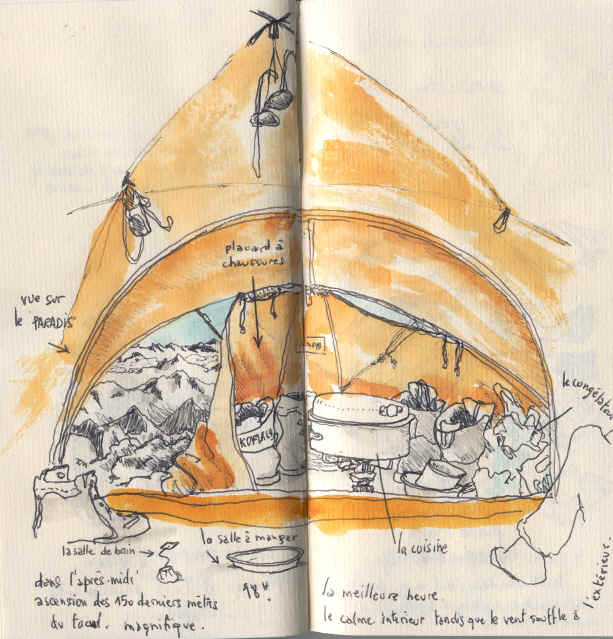 placard à
chaussures
vue sur
le PARADIS
le congélateur
la salle de bain
la salle à manger
la cuisine
dans l'après-midi
ascension des 450 derniers mètres
du magnifique.
18H
la meilleure heure.
le calme intérieur tandis que le vent souffle à
l'extérieur.